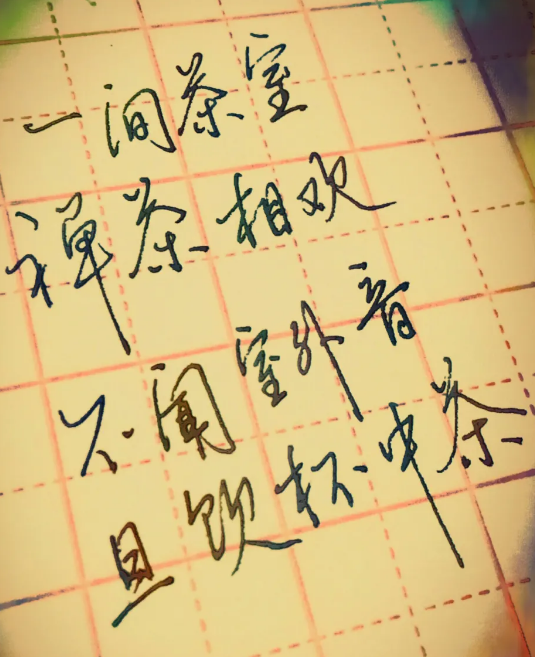 一间茶室
禅茶相欢
不闻室外音
且饮杯中茶